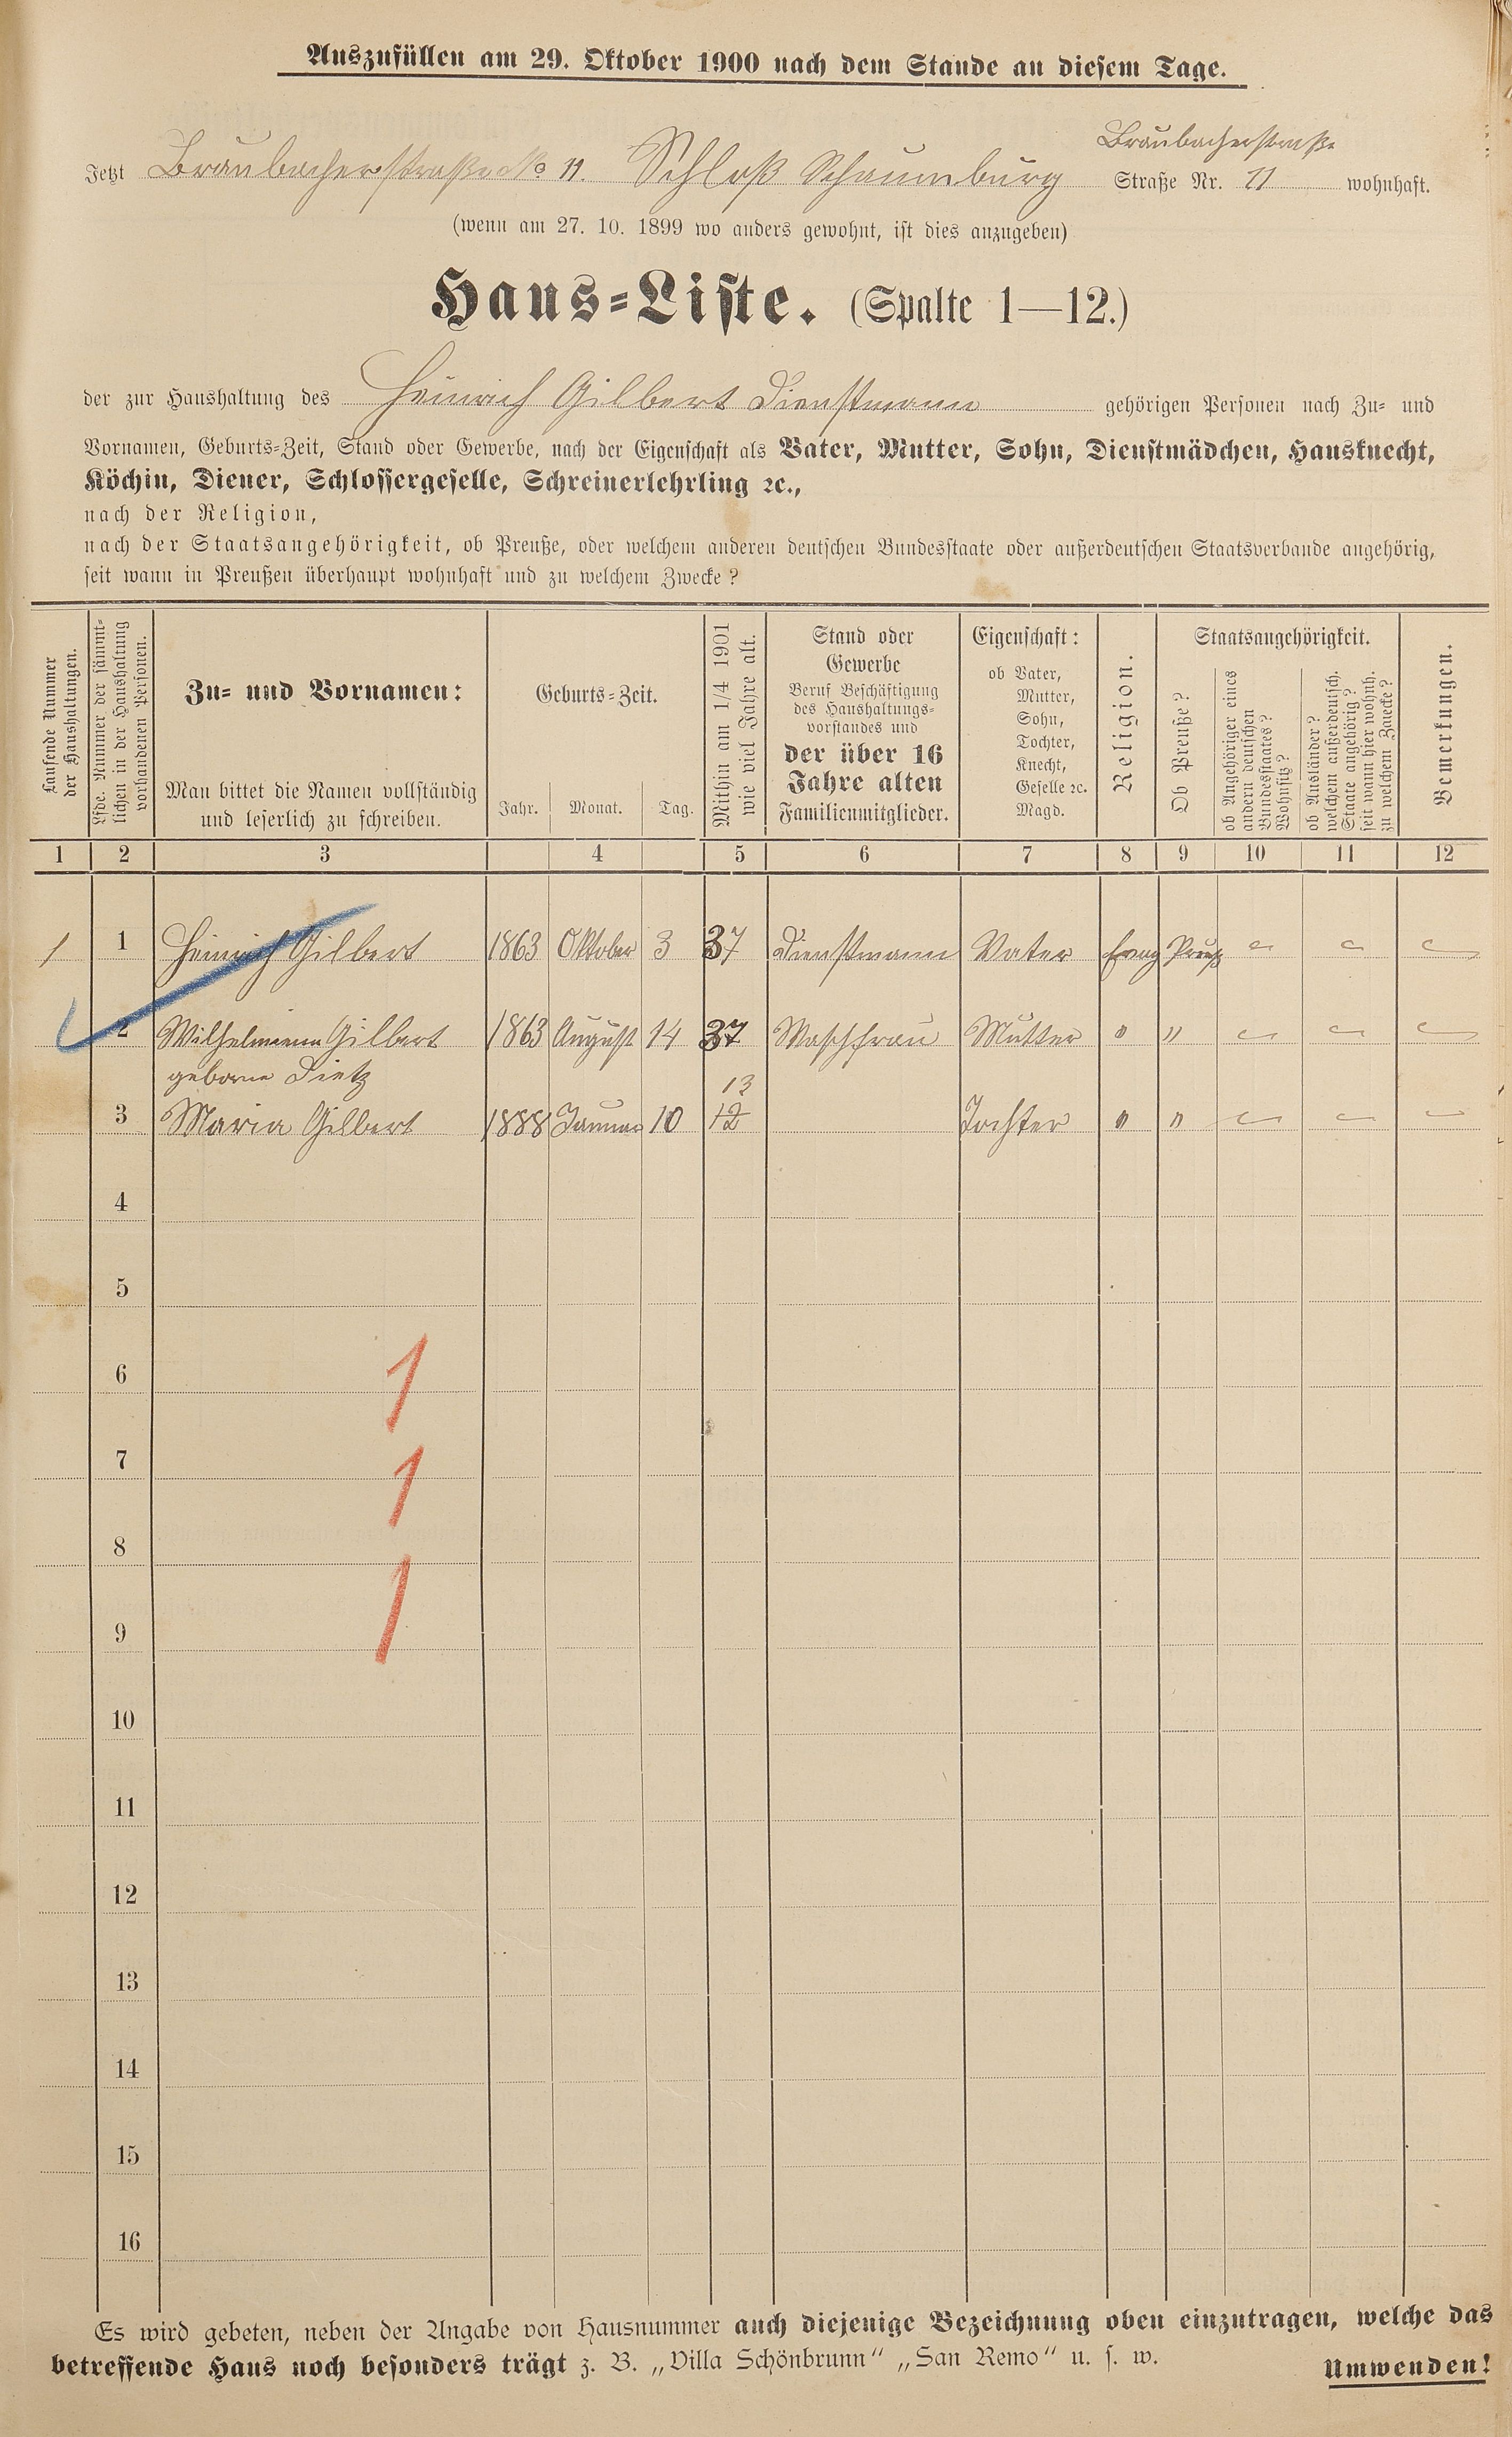 Auszufüllen am 29. Oktober 1900 nach dem Stande an diesem Tage.
Braubacherstraße
Jetzt Braubacherstraße No 11. Schloß Schaumburg Straße Nr. 11 wohnhaft.
(wenn am 27. 10. 1899 wo anders gewohnt, ist dies anzugeben)
Haus-Liste. (Spalte 1—12.)
der zur Haushaltung des Heinrich Gilbert Dienstmann gehörigen Personen nach Zu- und
Vornamen, Geburts-Zeit, Stand oder Gewerbe, nach der Eigenschaft als Vater, Mutter, Sohn, Dienstmädchen, Hausknecht,
Köchin, Diener, Schlossergeselle, Schreinerlehrling ꝛc.,
nach der Religion,
nach der Staatsangehörigkeit, ob Preuße, oder welchem anderen deutschen Bundesstaate oder außerdeutschen Staatsverbande angehörig,
seit wann in Preußen überhaupt wohnhaft und zu welchem Zwecke?
Laufende Nummer
der Haushaltungen.
Lfde. Nummer der sämmt-
lichen in der Haushaltung
vorhandenen Personen.
Zu- und Vornamen:
Man bittet die Namen vollständig
und leserlich zu schreiben.
Geburts-Zeit.
Jahr. Monat. Tag.
Mithin am 1/4 1901
wie viel Jahre alt.
Stand oder
Gewerbe
Beruf Beschäftigung
des Haushaltungs-
vorstandes und
der über 16
Jahre alten
Familienmitglieder.
Eigenschaft:
ob Vater,
Mutter,
Sohn,
Tochter,
Knecht,
Geselle ꝛc.
Magd.
Religion.
Staatsangehörigkeit.
Ob Preuße?
ob Angehöriger eines
andern deutschen
Bundesstaates?
Wohnsitz?
ob Ausländer?
welchem außerdeutsch.
Staate angehörig?
seit wann hier wohnh.
zu welchem Zwecke?
Bemerkungen.
1 2 3 4 5 6 7 8 9 10 11 12
1 1 Heinrich Gilbert 1863 Oktober 3 37 Dienstmann Vater Evang Preuß
2 Wilhelmiena Gilbert 1863 August 14 37 Waschfrau Mutter " "
geborne Dietz
13
3 Maria Gilbert 1888 Januar 10 12 Tochter " "
4
5
6
1
7
1
8
1
9
10
11
12
13
14
15
16
Es wird gebeten, neben der Angabe von Hausnummer auch diejenige Bezeichnung oben einzutragen, welche das
betreffende Haus noch besonders trägt z. B. „Villa Schönbrunn“ „San Remo“ u. s. w.
Umwenden!